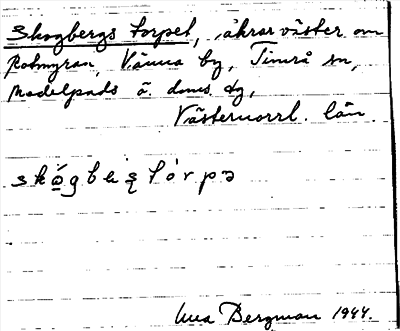 Skogbergs torpet, åkrar väster om
Rotmyran, Vänna by, Timrå sn,
Medelpads ö. doms. dg,
Västernorrl. län.
Una Bergman 1944.